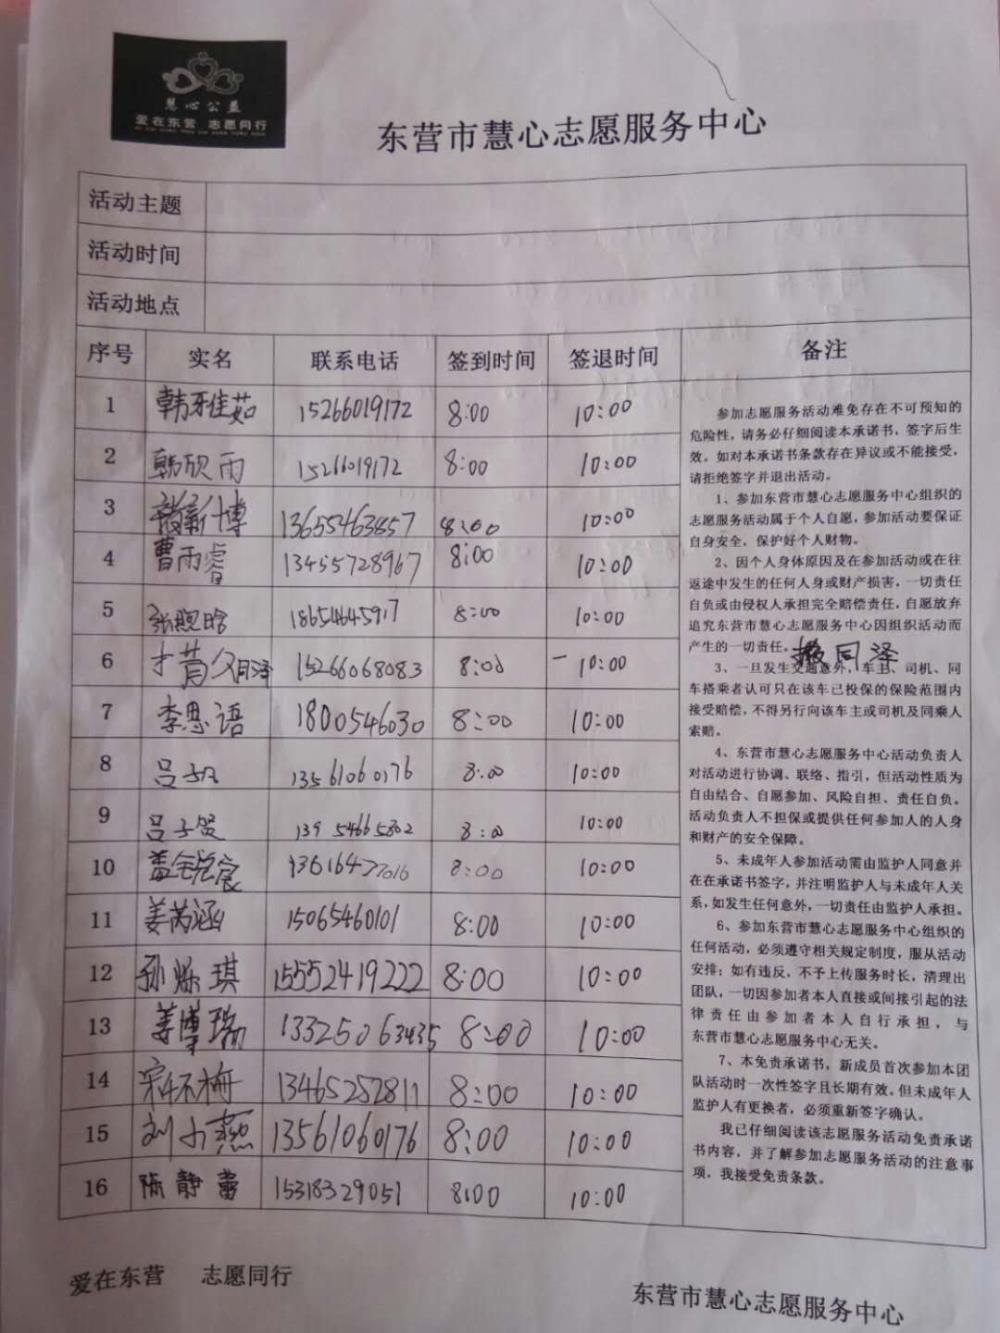 慧心公益
爱在东营 志愿同行
东营市慧心志愿服务中心
活动主题
活动时间
活动地点
序号 实名 联系电话 签到时间 签退时间 备注
1 韩雅茹 15266019172 8:00 10:00
2 韩欣雨 15266019172 8:00 10:00
3 13655463857 8:00 10:00
4 曹雨睿 13455728967 8:00 10:00
5 张熙晗 18654645917 8:00 10:00
6 15266068083 8:00 10:00
7 李思语 1800546030 8:00 10:00
8 吕 13561060176 8:00 10:00
9 吕子 13954665802 8:00 10:00
10 8:00 10:00
11 姜芮涵 15065460101 8:00 10:00
12 孙烁琪 15552419222 8:00 10:00
13 姜博瑞 13325063435 8:00 10:00
14 梅 13465252811 8:00 10:00
15 刘小燕 13561060176 8:00 10:00
16 陈静蕾 15318329051 8:00 10:00
参加志愿服务活动难免存在不可预知的
危险性,请务必仔细阅读本承诺书,签字后生
效。如对本承诺书条款存在异议或不能接受,
请拒绝签字并退出活动。
1、参加东营市慧心志愿服务中心组织的
志愿服务活动属于个人自愿,参加活动要保证
自身安全,保护好个人财物。
2、因个人身体原因及在参加活动或在往
返途中发生的任何人身或财产损害,一切责任
自负或由侵权人承担完全赔偿责任,自愿放弃
追究东营市慧心志愿服务中心因组织活动而
产生的一切责任。 同泽
3、一旦发生交通意外,车主、司机、同
车搭乘者认可只在该车已投保的保险范围内
接受赔偿,不得另行向该车主或司机及同乘人
索赔。
4、东营市慧心志愿服务中心活动负责人
对活动进行协调、联络、指引,但活动性质为
自由结合、自愿参加、风险自担、责任自负。
活动负责人不担保或提供任何参加人的人身
和财产的安全保障。
5、未成年人参加活动需由监护人同意并
在在承诺书签字,并注明监护人与未成年人关
系,如发生任何意外,一切责任由监护人承担。
6、参加东营市慧心志愿服务中心组织的
任何活动,必须遵守相关规定制度,服从活动
安排;如有违反,不予上传服务时长,清理出
团队,一切因参加者本人直接或间接引起的法
律责任由参加者本人自行承担,与
东营市慧心志愿服务中心无关。
7、本免责承诺书,新成员首次参加本团
队活动时一次性签字且长期有效。但未成年人
监护人有更换者,必须重新签字确认。
我已仔细阅读该志愿服务活动免责承诺
书内容,并了解参加志愿服务活动的注意事
项,我接受免责条款。
爱在东营 志愿同行
东营市慧心志愿服务中心